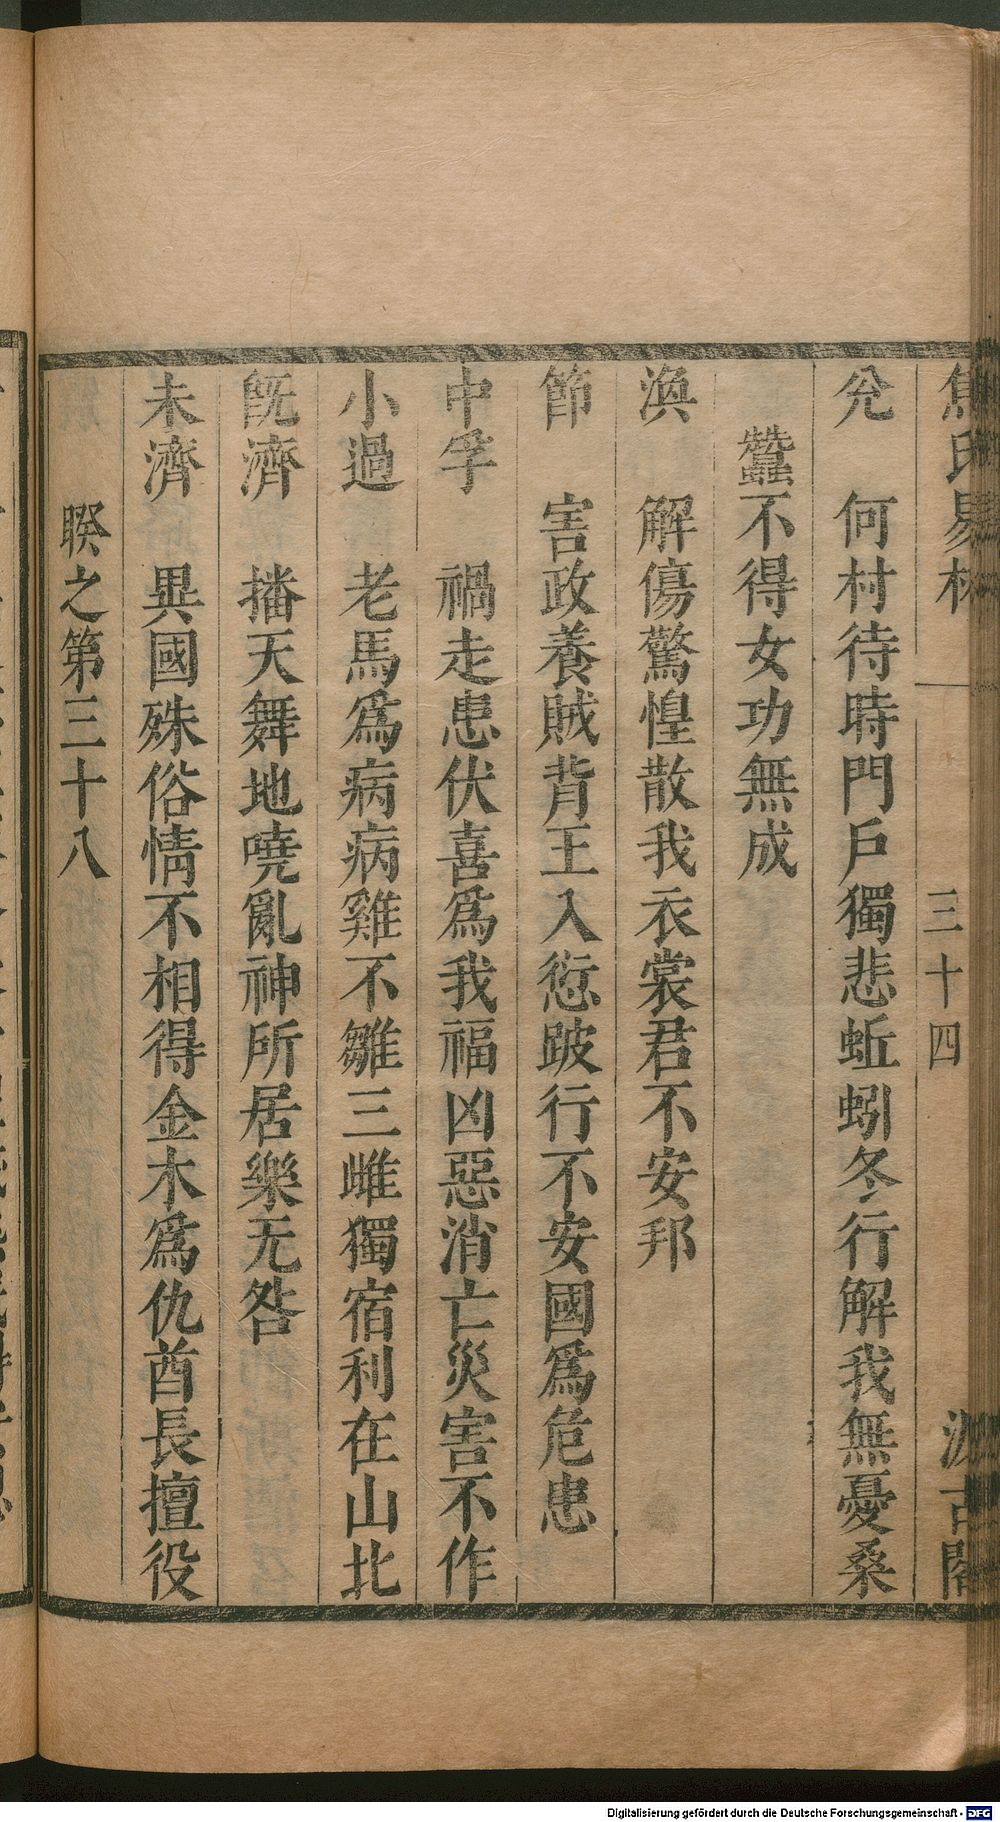 焦氏易林
三十四
汲古閣
兊 何村待時門戶獨悲蚯蚓冬行解我無憂桑
蠶不得女功無成
渙 解傷驚惶散我衣裳君不安邦
節 害政養賊背王入愆跛行不安國爲危患
中孚 禍走患伏喜爲我福凶惡消亡災害不作
小過 老馬爲病病雞不雛三雌獨宿利在山北
旣濟 播天舞地嘵亂神所居樂无咎
未濟 異國殊俗情不相得金木爲仇酋長擅役
睽之第三十八
Digitalisierung gefördert durch die Deutsche Forschungsgemeinschaft - DFG